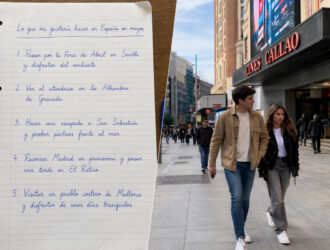 Lo que me gustaría hacer en España en mayo
1. Pasear por la Feria de Abril en Sevilla
y disfrutar del ambiente.
2. Ver el atardecer en la Alhambra
de Granada.
3. Hacer una escapada a San Sebastián
y probar pintxos frente al mar.
4. Recorrer Madrid en primavera y pasar
una tarde en El Retiro.
5. Visitar un pueblo costero de Mallorca
y disfrutar de unos días tranquilos
CINES CALLAO